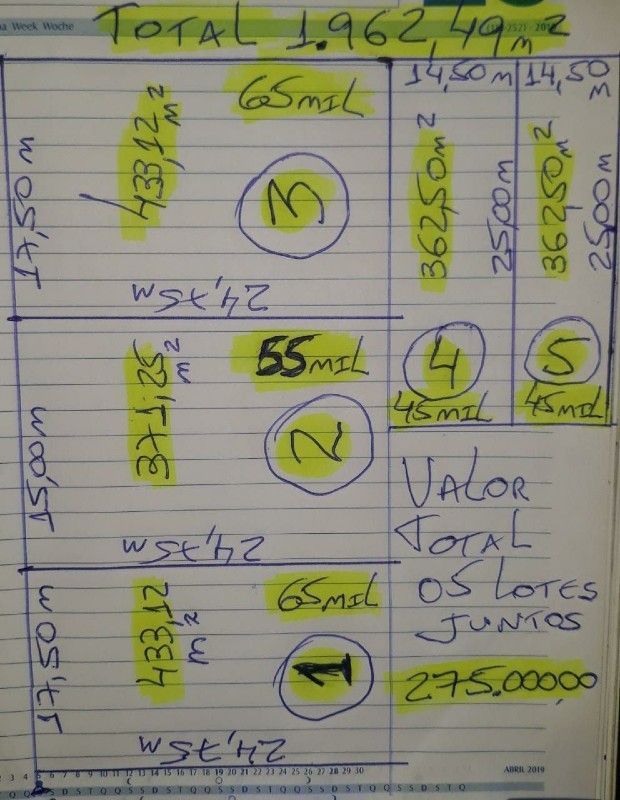 TOTAL 1.962,49 m²
a Week Woche
65MIL
433,12 m²
17,50 m
3
24,75 M
14,50 m
362,50 m²
25,00 m
4
45MIL
14,50 m
362,50 m²
25,00 m
5
45MIL
55MIL
371,25 m²
15,00 m
2
24,75 M
VALOR
TOTAL
05 LOTES
JUNTOS
275.000,00
65MIL
433,12 m²
17,50 m
1
24,75 M
ABRIL 2019
3 4 5 6 7 8 9 10 11 12 13 14 15 16 17 18 19 20 21 22 23 24 25 26 27 28 29 30